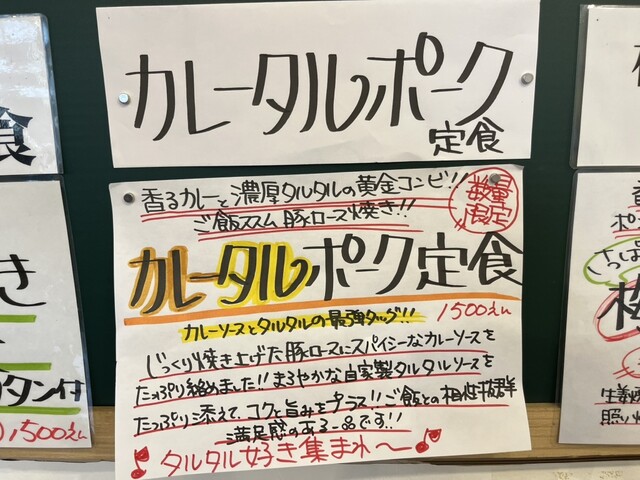 カレータルポーク
定食
香るカレーと濃厚タルタルの黄金コンビ!!
ご飯ススム豚ロース焼き!!
数量
限定
カレータルポーク定食
カレーソースとタルタルの最強タッグ!!
1500えん
じっくり焼き上げた豚ロースにスパイシーなカレーソースを
たっぷり絡めました!!まろやかな自家製タルタルソースを
たっぷり添えて、コクと旨みをプラス!!ご飯との相性抜群
満足感のある一品です!!
♪タルタル好き集まれ〜♪
食
き
タン付
1,500えん
さっぱ
梅
生姜
照い